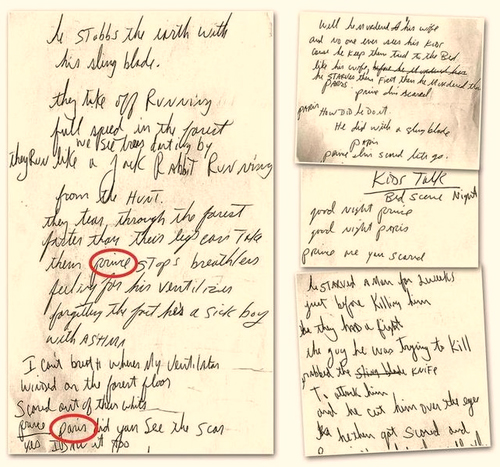 he stabbs the earth with
his sling blade.
they take off Running
full speed in the forest
we see trees darting by
they Run like a Jack Rabbit Running
from the HUNT.
they tear through the forest
faster than their legs can TAKE
them prince STOPS breathless
feeling for his ventilizer
forgetting the fact he's a sick boy
with ASTHMA
I cant breath wheres My ventilater
on the forest floor
Scared out of their whits
prince paris did you See the Scar
yes I saw it too
well he Murdered his wife
and no one ever sees his KIDS
cause he keep them tied to the Bed
like his wife,
he STARVES them First then he Murdered them
PARIS prince Im scared
PARIS How DID he Do it.
He did with a sling blade
paris
prince Im scared lets go.
KIDS Talk
Bed Scene Night
good night prince
good night paris
prince are you scared
he STARVED A Man for 2 weeks
just before Killing him
they had a fight
the guy he was Trying to Kill
grabbed the sling blade KNIFE
To attack him
and he cut him over the eye
he then got Scared and